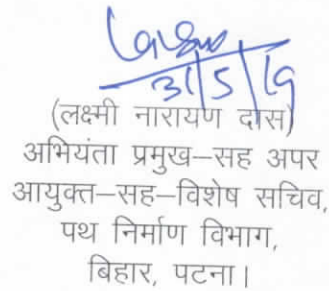 31/5/19
(लक्ष्मी नारायण दास)
अभियंता प्रमुख–सह अपर
आयुक्त–सह–विशेष सचिव,
पथ निर्माण विभाग,
बिहार, पटना।